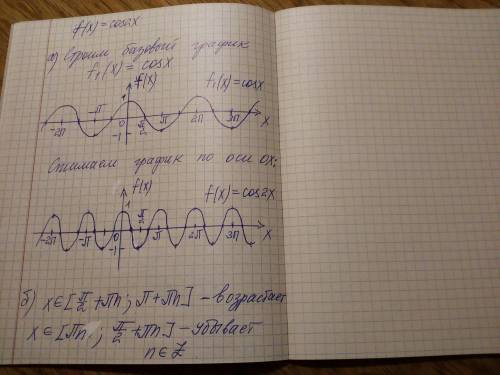 f(x) = cos2x
а) Строим базовый график
f₁(x) = cosx
f(x)
f₁(x) = cosx
1
-2π -π 0 π/2 π 2π 3π x
-1
Сжимаем график по оси OX:
f(x)
f(x) = cos2x
1
-2π -π 0 π/2 π 2π 3π x
-1
б) x∈[π/2 + πn ; π + πn] - возрастает
x∈[πn ; π/2 + πn] - убывает
n∈Z